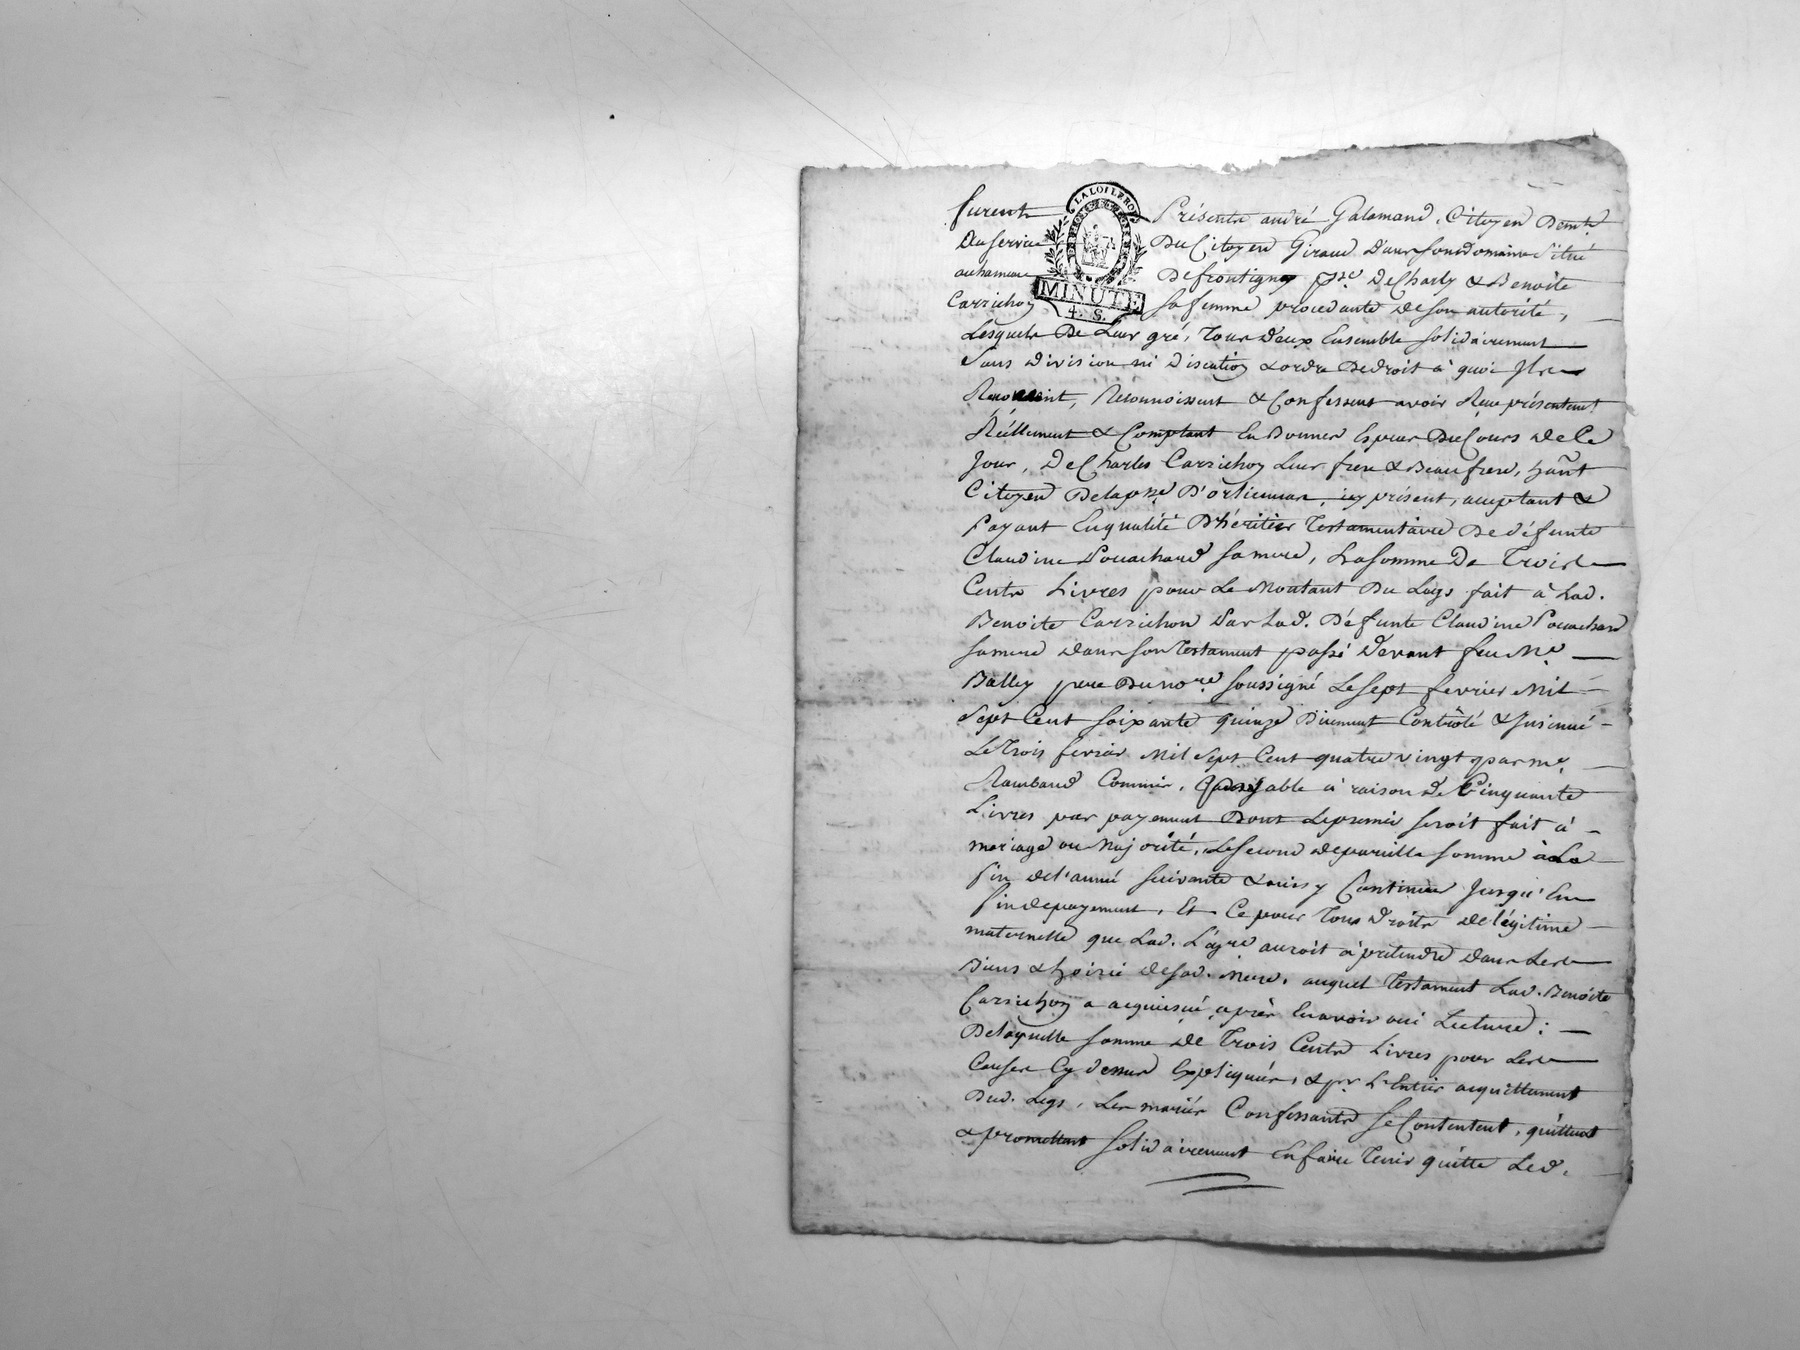 furent Présents andré Galamand, Citoyen Demt.
Au service Du Citoyen Giraud dans son Domaine Situé
au hameau De frontigny psse. De Charly & Benoite
Carrichon sa femme procedante de son autorité,
LA LOI LE ROI
MINUTE
4. S.
Lesquels De Leur gré, Tous deux Ensemble solidairement
Sans division ni discution & ordre De droit à quoi Ils
Renoncent, Reconnoissent & Confessent avoir Reçu présentement
Réellement & Comptant En Bonnes Especes Du Cours de Ce
Jour, De Charles Carrichon Leur frere & Beaufrere, hãnt
Citoyen De la psse. D'orlienas icy présent, acceptant &
Payant En qualité D'héritier Testamentaire De défunte
Claudine Pouachard sa mere, La somme De Trois
Cents Livres pour Le Montant Du Legs fait à Lad.
Benoite Carrichon Par Lad. Défunte Claudine Pouachard
sa mere dans son Testament passé devant feu Me.
Bailly pere Du nore. soussigné Le sept fevrier Mil
Sept Cent soixante quinze Duement Contrôlé & Insinué
Le Trois fevrier Mil Sept Cent quatre vingt par me.
Rambaud Commis, payable à raison de Cinquante
Livres par payement Dont Le premier seroit fait à
mariage ou Majorité, Le second de pareille somme à La
fin de l'année suivante & ainsy Continuer Jusqu'En
fin de payement, Et Ce pour Tous droits de légitime
maternelle que Lad. Légre auroit à prétendre dans Les
Biens & hoirie de sad. Mere, auquel Testament Lad. Benoite
Carrichon a acquiescé après En avoir oui Lecture :
De laquelle somme de Trois Cents Livres pour Les
Causes Cy dessus Expliquées, & pr. L'Entier acquittement
Dud. Legs, Les mariés Confessants se Contentent, quittent
& promettent solidairement En faire Tenir quitte Led.